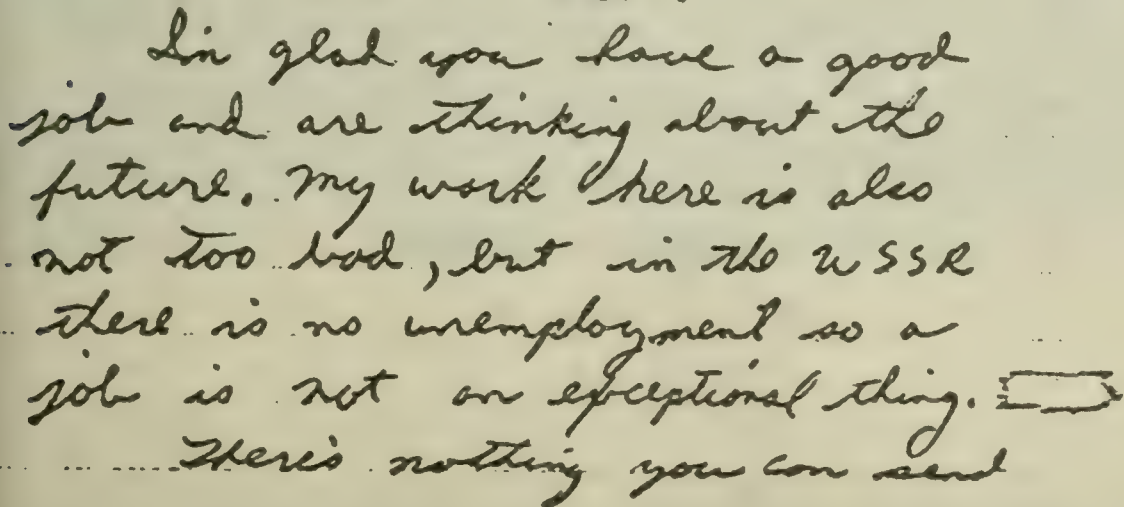 I'm glad you have a good
job and are thinking about the
future. My work here is also
not too bad, but in the USSR
there is no unemployment so a
job is not an exceptional thing.
There's nothing you can send